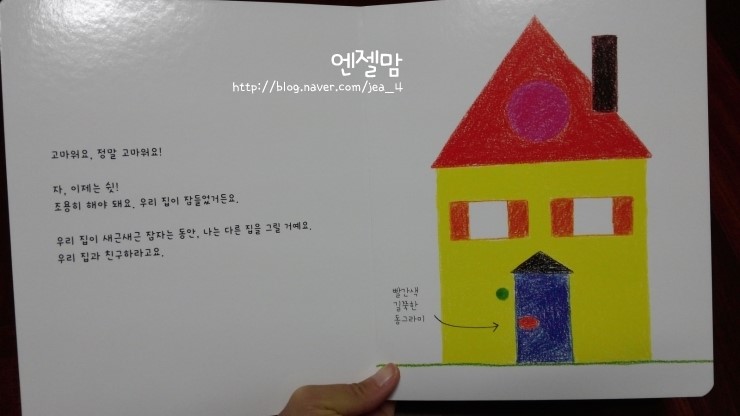 엔젤맘
http://blog.naver.com/jea_4
고마워요, 정말 고마워요!
자, 이제는 쉿!
조용히 해야 돼요. 우리 집이 잠들었거든요.
우리 집이 새근새근 잠자는 동안, 나는 다른 집을 그릴 거예요.
우리 집과 친구하라고요.
빨간색
길쭉한
동그라미